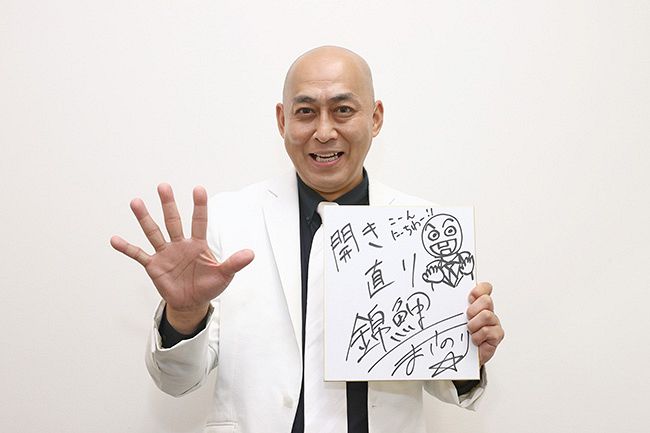 開き
直り
こーん
にーちわー!!
錦鯉
まさのり